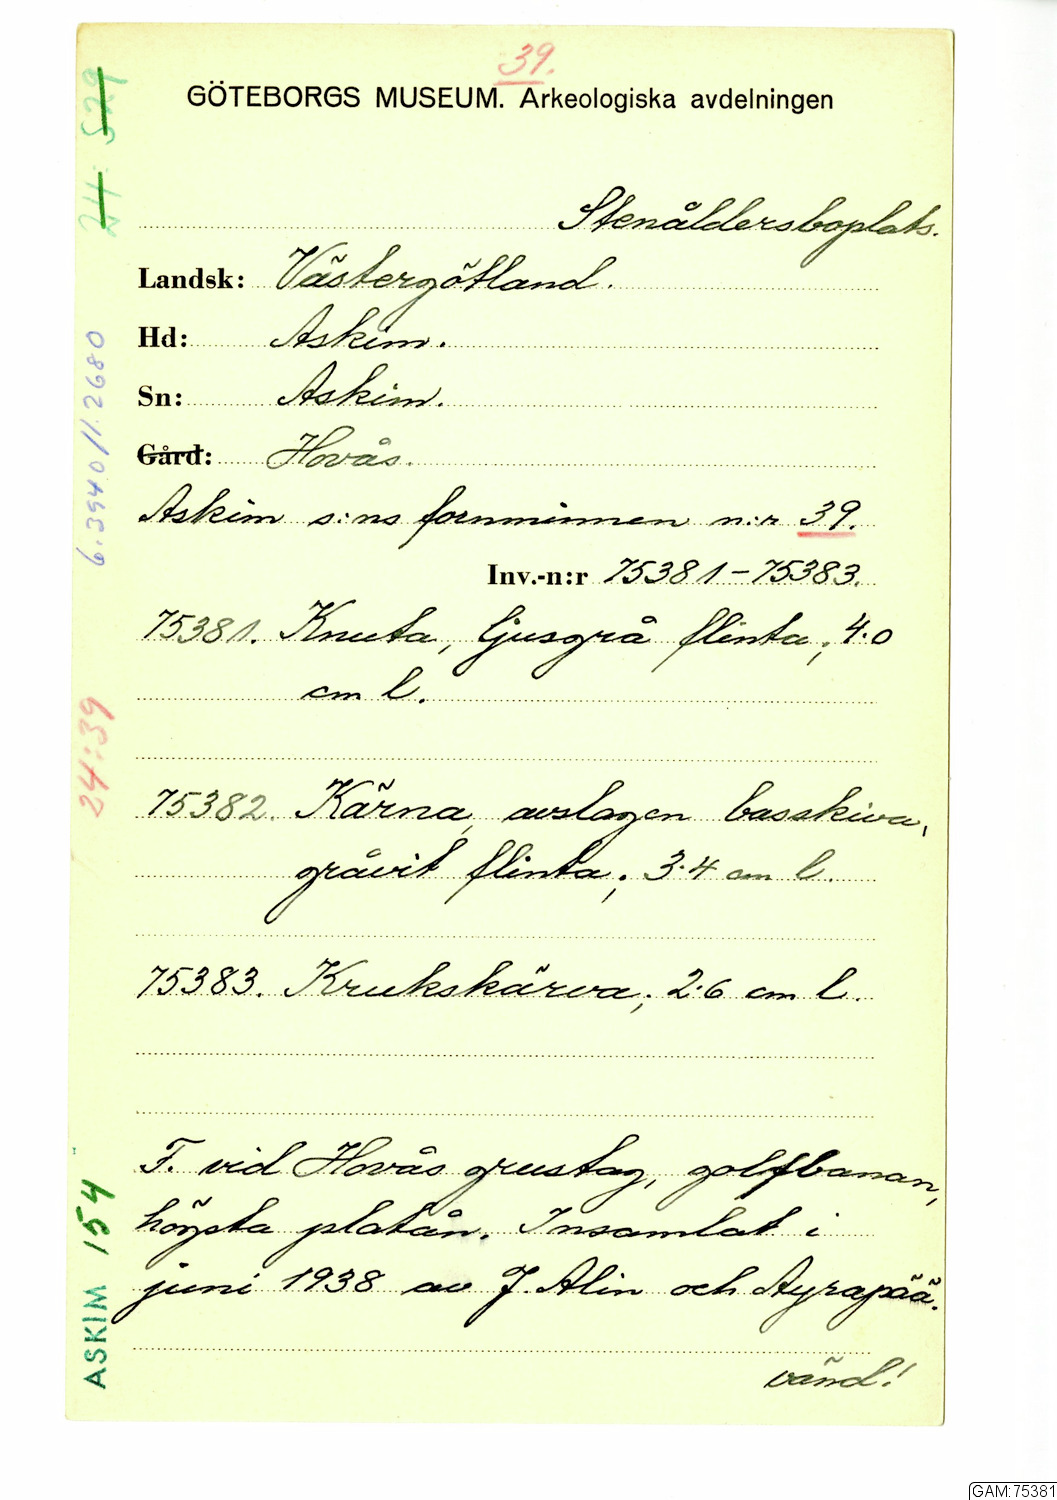 39.
GÖTEBORGS MUSEUM. Arkeologiska avdelningen
Stenåldersboplats.
Landsk: Västergötland.
Hd: Askim.
Sn: Askim.
Gård: Hovås.
Askim s:ns fornminnen n:r 39.
Inv.-n:r 75381-75383.
75381. Knuta, ljusgrå flinta; 4.0
cm l.
75382. Kärna, avslagen basskiva,
gråvit flinta; 3.4 cm l.
75383. Krukskärva; 2.6 cm l.
F. vid Hovås grustag, golfbanan,
högsta platån. Insamlat i
juni 1938 av J. Alin och Äyräpää.
vänd!
24: 529
6.3940/1.2680
24:39
ASKIM 154
GAM:75381